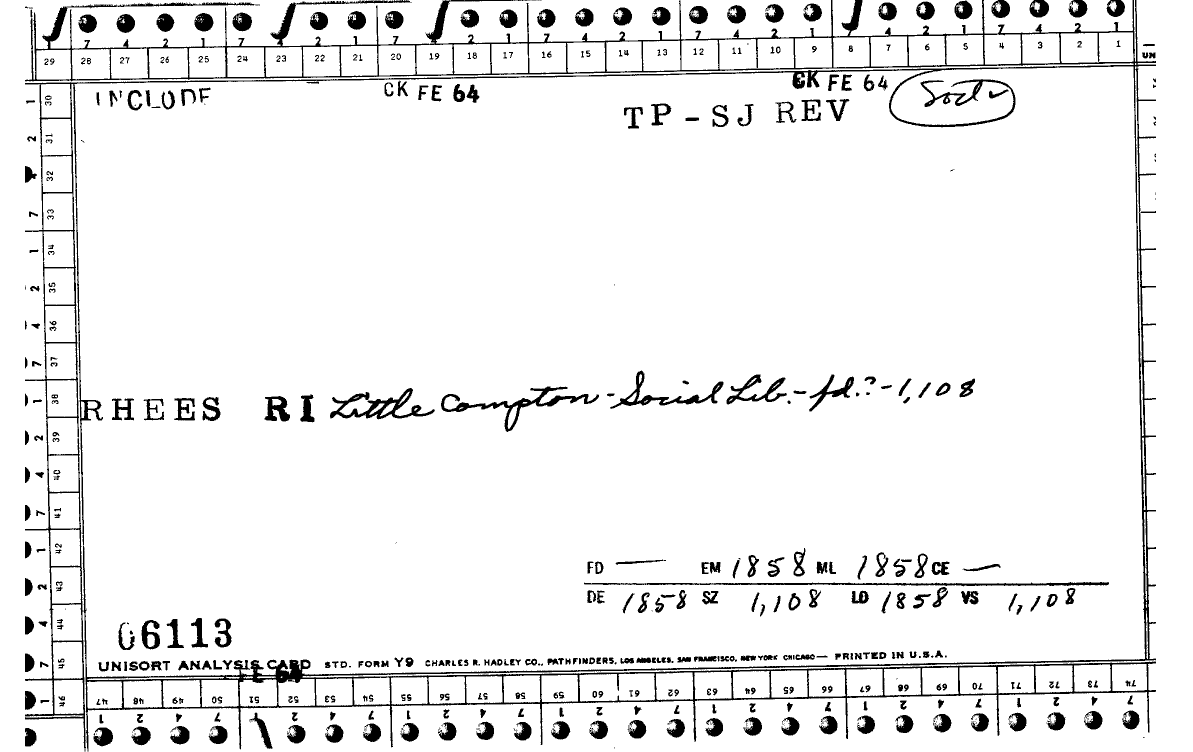 7 4 2 1 7 2 1 7 2 1 7 4 2 1 7 4 2 1 4 2 1 7 4 2 1
29 28 27 26 25 24 23 22 21 20 19 18 17 16 15 14 13 12 11 10 9 8 7 6 5 4 3 2 1
INCLUDE CK FE 64 CK FE 64
TP-SJ REV
1 30
2 31
32
7 33
1 34
2 35
4 36
7 37
RHEES RI Little Compton - Social Lib. - fd.? - 1,108
1 38
2 39
4 40
7 41
1 42
2 43
4 44
7 45
1 46
FD — EM 1858 ML 1858 CE —
DE 1858 SZ 1,108 LD 1858 VS 1,108
06113
UNISORT ANALYSIS CARD STD. FORM Y9 CHARLES R. HADLEY CO., PATHFINDERS, LOS ANGELES, SAN FRANCISCO, NEW YORK CHICAGO — PRINTED IN U.S.A.
FE 64
47 48 49 50 51 52 53 54 55 56 57 58 59 60 61 62 63 64 65 66 67 68 69 70 71 72 73 74
1 2 4 7 2 4 7 1 2 4 7 1 2 4 7 1 2 4 7 1 2 4 7 1 2 4 7